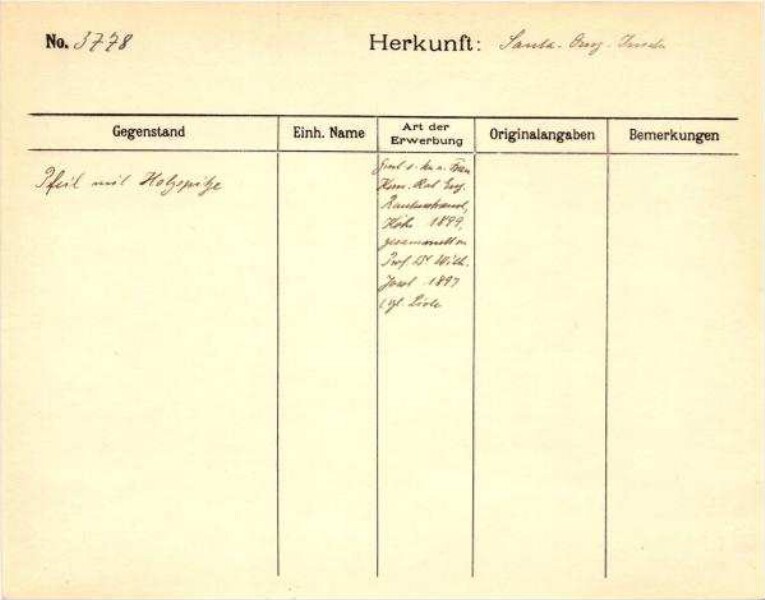 No. 3778
Herkunft: Santa-Cruz-Inseln
Gegenstand
Einh. Name
Art der Erwerbung
Originalangaben
Bemerkungen
Pfeil mit Holzspitze
Kom. Rat Eug.
Köln 1899,
gesammelt von
Prof. Dr. Wilh.
Joest 1897